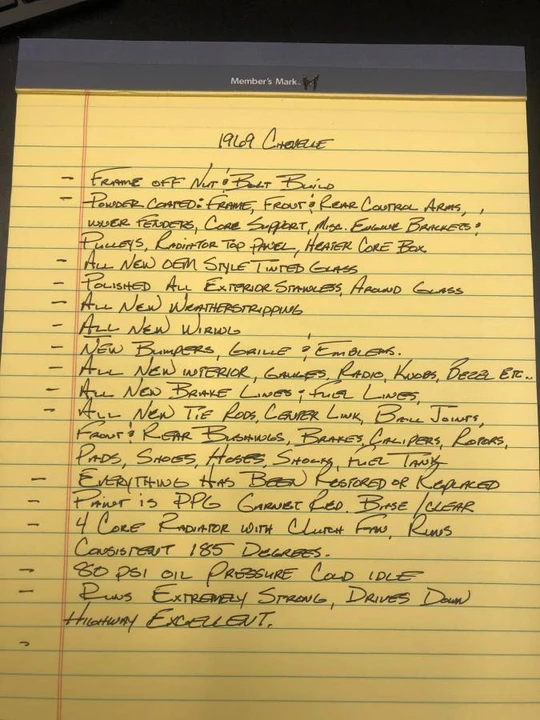 Member's Mark.
1969 Chevelle
- Frame off Nut & Bolt Build
- Powder Coated: Frame, Front & Rear Control Arms,
inner Fenders, Core Support, Misc. Engine Brackets &
Pulleys, Radiator Top Panel, Heater Core Box
- All New OEM Style Tinted Glass
- Polished All Exterior Stainless, Around Glass
- All New Weatherstripping
- All New Wiring
- New Bumpers, Grille & Emblems.
- All New interior, Gauges, Radio, Knobs, Bezel etc..
- All New Brake Lines & Fuel Lines,
- All New Tie Rods, Center Link, Ball Joints,
Front & Rear Bushings, Brakes, Calipers, Rotors,
Pads, Shoes, Hoses, Shocks, Fuel Tank
- Everything Has Been Restored or Replaced
- Paint is PPG Garnet Red. Base/clear
- 4 Core Radiator with Clutch Fan, Runs
Consistent 185 Degrees.
- 80 psi oil Pressure Cold idle
- Runs Extremely Strong, Drives Down
Highway Excellent.
-